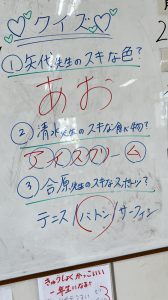 ♡クイズ♡
①矢代先生のスキな色？
あお
②清水先生のスキな食べ物？
アイスクリーム
③合原先生のスキなスポーツ？
テニス バトン サーフィン
きゅうしょくかっこいい
一年生になる！